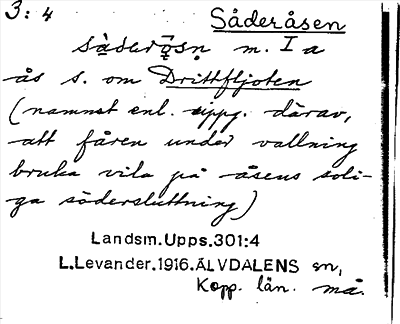 3:4 Såderåsen
sàderǫ̀sn̥ m. I a
ås s. om Drittfljoten
(namnet enl. uppg. därav,
att fåren under vallning
bruka vila på åsens soli-
ga södersluttning)
Landsm.Upps.301:4
L.Levander.1916.ÄLVDALENS sn,
Kopp. län. må.